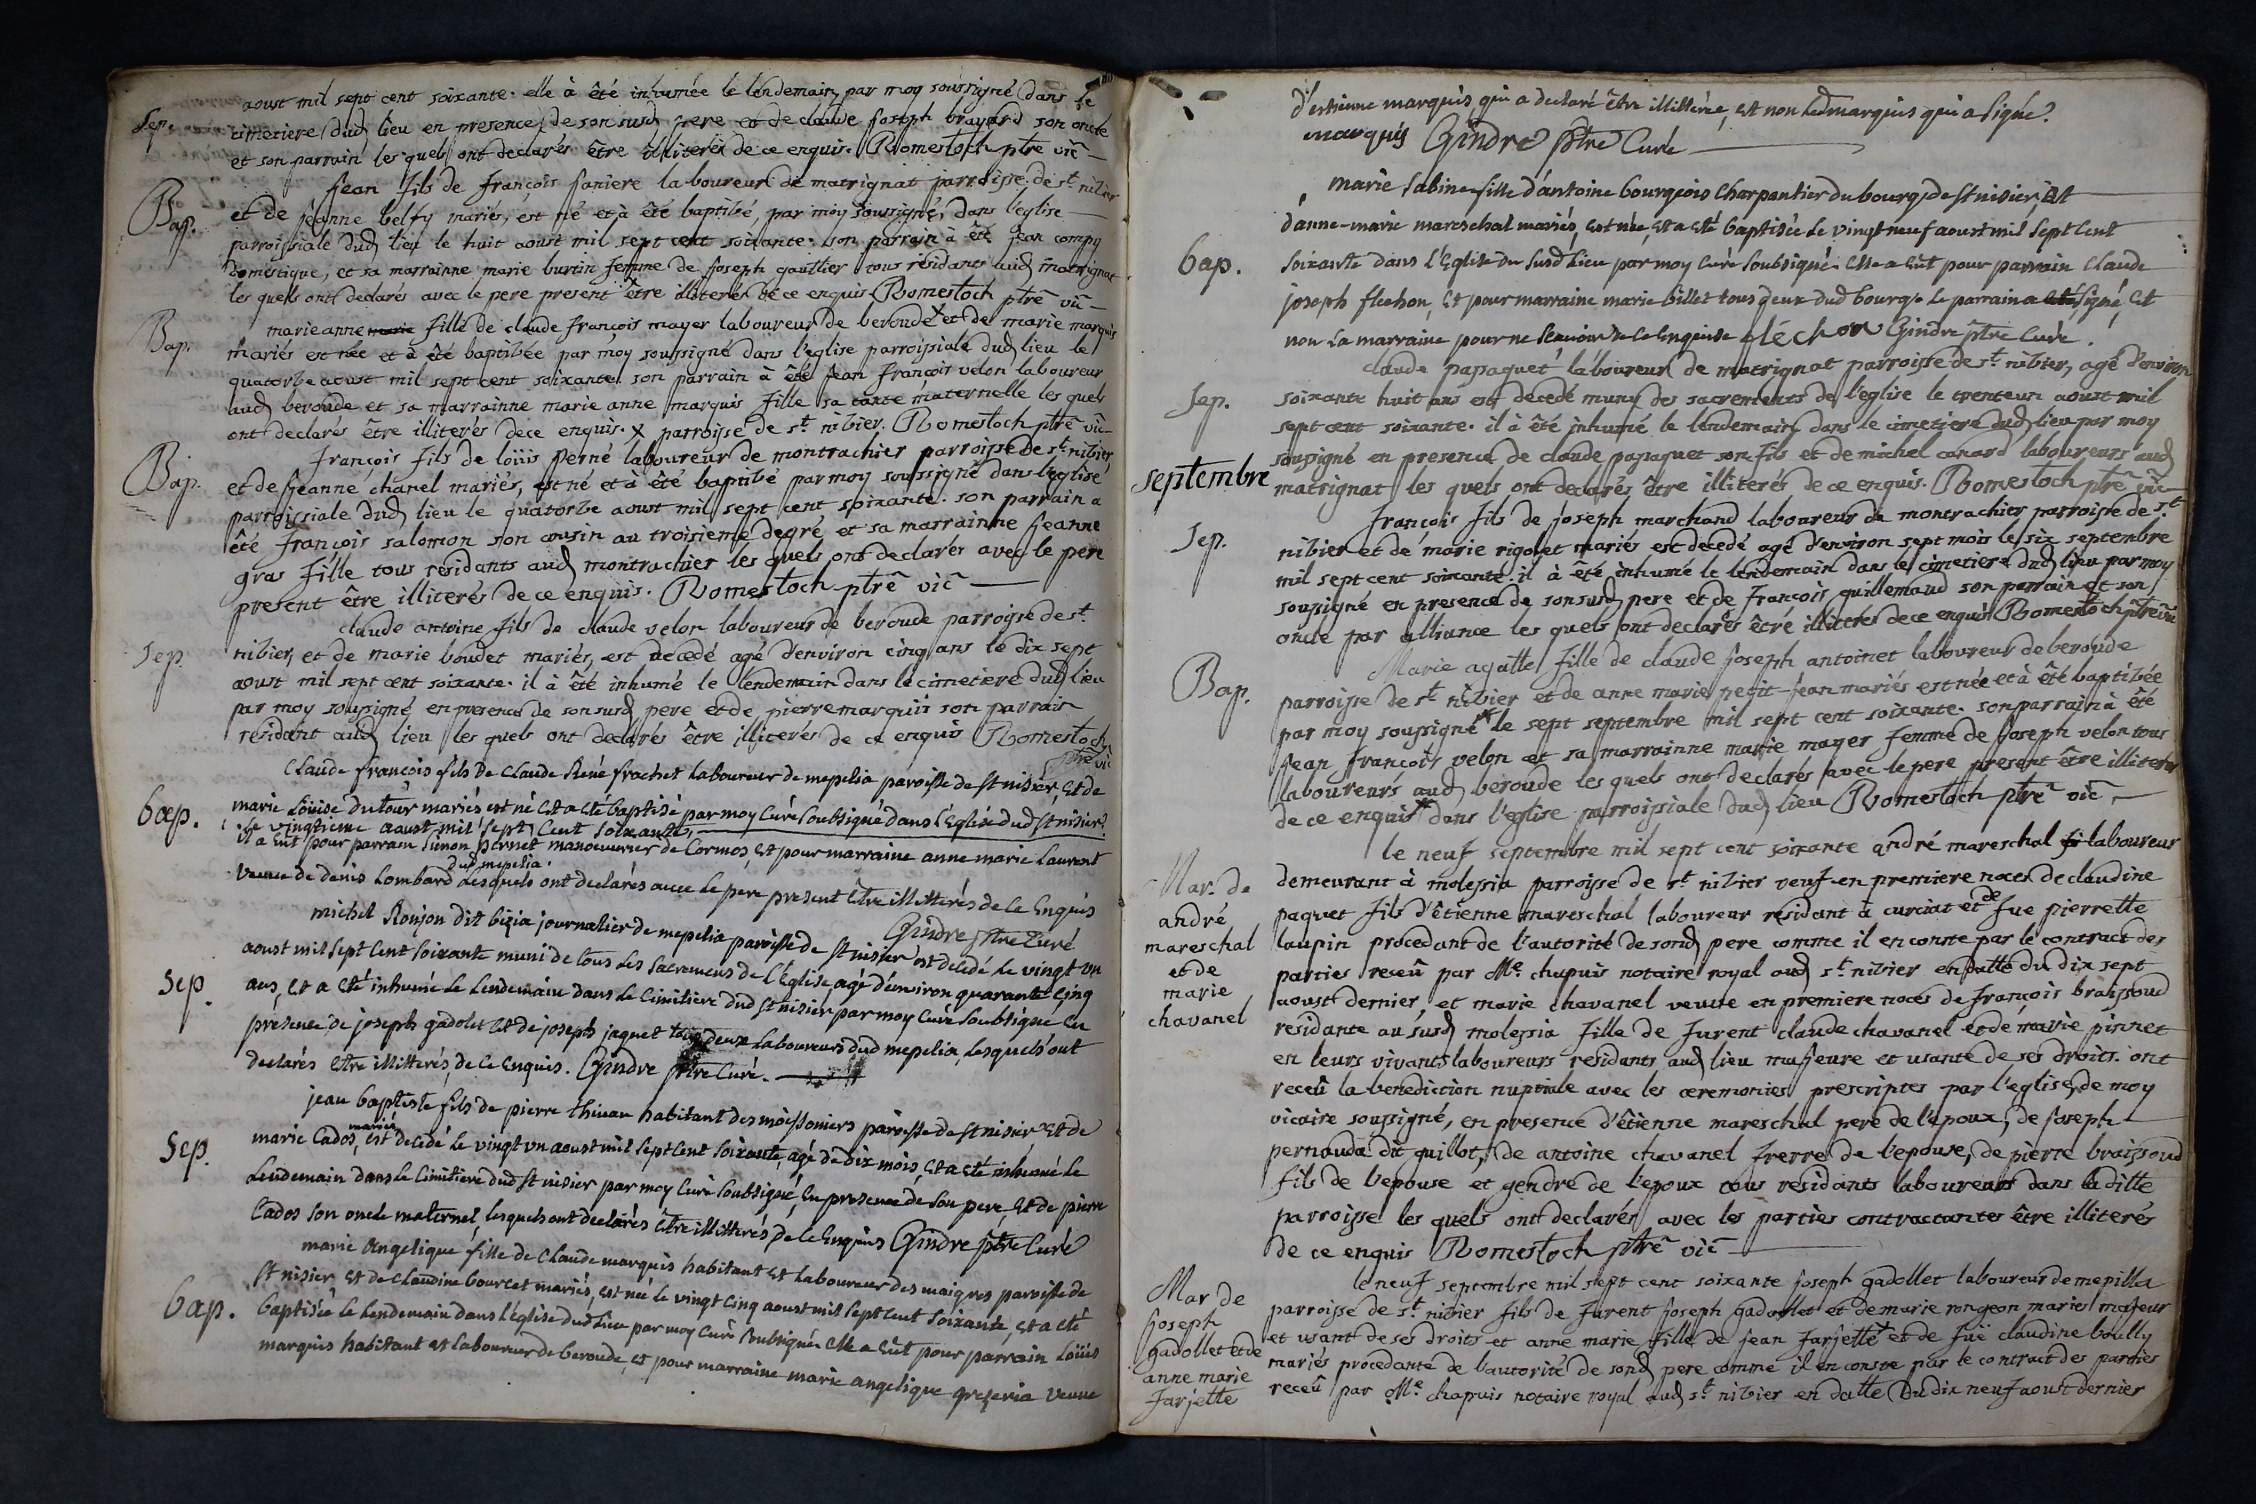 aoust mil sept cent soixante. elle à été inhumée le lendemain par moy soussigné dans le
Sep. cimetiere dud lieu en presence de son susd pere et de claude joseph brayard son oncle
et son parrain les quels ont declarés être illiterés de ce enquis. Romestoch ptre vic
Jean fils de françois faniere laboureur de matrignat parroisse de st nibier
Bap. et de jeanne belfy mariés, est né et à été baptibé, par moy soussigné, dans l'eglise
parroissiale dud lieu le huit aoust mil sept cent soixante. son parrain à été jean compy
domestique, et sa marrainne marie burtin femme de joseph gaultier tous residants aud matrignat
les quels ont declarés avec le pere present être illiterés de ce enquis Romestoch ptre vic
Bap. marie anne marie fille de claude françois mayer laboureur de beroude x et de marie marquis
mariés est née et à été baptibée par moy soussigné dans l'eglise parroissiale dud lieu le
quatorbe aoust mil sept cent soixante. son parrain à été jean françois velon laboureur
aud beroude et sa marrainne marie anne marquis fille sa tante maternelle les quels
ont declarés être illiterés de ce enquis. x parroisse de st nibier. Romestoch ptre vic
françois fils de loüis perné laboureur de montrachier parroisse de st nibier
Bap. et de jeanne chanel mariés, est né et à été baptibé par moy soussigné dans l'eglise
parroissiale dud lieu le quatorbe aoust mil sept cent soixante. son parrain a
été françois salomon son cousin au troisieme degré et sa marrainne jeanne
gras fille tous residants aud montrachier les quels ont declarés avec le pere
present être illiterés de ce enquis. Romestoch ptre vic
claude antoine fils de claude velon laboureur de beroude parroisse de st
Sep. nibier, et de marie boudet mariés, est decedé agé d'environ cinq ans le dix sept
aoust mil sept cent soixante. il à été inhumé le lendemain dans le cimetiere dud lieu
par moy soussigné en presence de son susd pere et de pierre marquis son parrain
residant aud lieu les quels ont declarés être illiterés de ce enquis Romestoch
ptre vic
Claude françois fils De Claude René frachet Laboureur de mepelia paroisse de St nisier, Et de
bap. marie Loüise dutour mariés est né Et a eté baptisé par moy Curé Soubsigné dans l'Eglise dud St nisier
le vingtieme aoust mil sept Cent Soixante,
il a Eut pour parrain Simon pernet manoeuvrier de Cormos, Et pour marraine anne marie Laurent
dud mepelia.
veuve de denis Lombard Lesquels ont declarés avec le pere present Etre illitterés de Ce Enquis
Gindre ptre Curé
michel Ronjon dit bizia journalier de mepelia paroisse de St nisier est decedé Le vingt un
aoust mil sept Cent Soixante muni de tous Les Sacremens de l'Eglise agé d'environ quarante Cinq
Sep. ans, Et a eté inhumé Le Lendemain dans Le Cimitiere dud St nisier par moy Curé Soubsigné En
presence de joseph gadolet Et de joseph jaquet tous deux Laboureurs dud mepelia, Lesquels ont
declarés Etre illitterés, de Ce Enquis. Gindre ptre Curé.
jean baptiste fils de pierre thinan habitant des moissoniers paroisse de St nisier Et de
mariés
Sep. marie Cados, est decedé Le vingt vn aoust mil Sept Cent Soixante, agé de dix mois, Et a eté inhumé le
Lendemain dans Le Cimitiere dud St nisier par moy Curé Soubsigné, En presence de Son pere Et de pierre
Cados Son oncle maternel, lesquels ont declarés Etre illitterés de Ce Enquis Gindre ptre Curé
marie Angelique fille de Claude marquis habitant Et Laboureur des maigres paroisse de
St nisier, Et de Claudine bourcet mariés, est née le vingt Cinq aoust mil Sept Cent Soixante, Et a eté
bap. baptisée Le Lendemain dans l'Eglise dud Lieu par moy Curé Soubsigné. Elle a Eut pour parrain Loüis
marquis habitant et Laboureur de beroude, Et pour marraine marie angelique grezeria veuve
d'estienne marquis qui a declaré être illitterée, Et non Led marquis qui a Signé.
marquis Gindre ptre Curé
marie Sabine fille d'antoine bourgeois Charpantier du bourg de St nisier, Et
d'anne-marie mareschal mariés, est née, Et a eté baptisée Le vingt neuf aoust mil Sept Cent
bap. Soixante dans l'Eglise du Susd Lieu par moy Curé Soubsigné. Elle a Eut pour parrain Claude
joseph flechon, Et pour marraine marie billet tous deux dud bourg. Le parrain a eté signé, Et
non La marraine pour ne Scavoir de Ce Enquise fléchon Gindre ptre Curé.
claude papaquet laboureur de matrignat parroisse de st nibier, agé d'environ
Sep. soixante huit ans est decedé muny des sacrements de l'eglise le trenteun aoust mil
sept cent soixante. il à été inhumé le lendemain dans le cimetiere dud lieu par moy
soussigné en presence de claude papaquet son fils et de michel canard laboureurs aud
septembre matrignat les quels ont declarés être illiterés de ce enquis. Romestoch ptre vic
françois fils de joseph marchand laboureur de montrachier parroisse de st
Sep. nibier et de marie rigolet mariés est decedé agé d'environ sept mois le six septembre
mil sept cent soixante. il à été inhumé le lendemain dans le cimetiere dud lieu par moy
soussigné en presence de son susd pere et de françois guillemaud son parrain et son
oncle par alliance les quels ont declarés être illiterés de ce enquis Romestoch ptre vic
Marie agatte fille de claude joseph antoinet laboureur de beroude
Bap. parroisse de st nibier et de anne marie petit-jean mariés est née et à été baptibée
par moy soussigné x le sept septembre mil sept cent soixante. son parrain à été
jean françois velon et sa marrainne marie mayer femme de joseph velon tous
laboureurs aud beroude les quels ont declarés avec le pere present être illiterés
de ce enquis x dans l'eglise parroissiale dud lieu Romestoch ptre vic
le neuf septembre mil sept cent soixante andré mareschal fi laboureur
Mar. de demeurant à molessia parroisse de st nibier veuf en premiere noces de claudine
andré paquet fils d'étienne mareschal laboureur residant à curciat et de fue pierrette
mareschal laupin procedant de l'autorité de sond pere comme il en conste par le contract des
et de parties receû par Me. chapuis notaire royal aud st nibier en datte du dix sept
marie aoust dernier, et marie chavanel veuve en premiere noces de françois braissoud
chavanel residante au susd molessia fille de furent claude chavanel et de marie pinnet
en leurs vivants laboureurs residants aud lieu majeure et usante de ses droits. ont
receû la benediction nuptiale avec les ceremonies prescriptes par l'eglise, de moy
vicaire soussigné, en presence d'étienne mareschal pere de l'epoux, de joseph
pernauda dit guillot, de antoine chavanel frerre de l'epouse, de pierre braissoud
fils de l'epouse et gendre de l'epoux tous residants laboureurs dans la ditte
parroisse les quels ont declarés avec les parties contractantes être illiterés
de ce enquis Romestoch ptre vic
le neuf septembre mil sept cent soixante joseph gadollet laboureur de mepillia
Mar de parroisse de st nibier fils de furent joseph gadollet et de marie rongeon mariés majeur
joseph et usant de ses droits et anne marie fille de jean farjette x et de fuë claudine boully
gadollet et de mariés procedante de l'autorité de sond pere comme il en conste par le contract des parties
anne marie receû par Me. chapuis notaire royal aud st nibier en datte du dix neuf aoust dernier
farjette